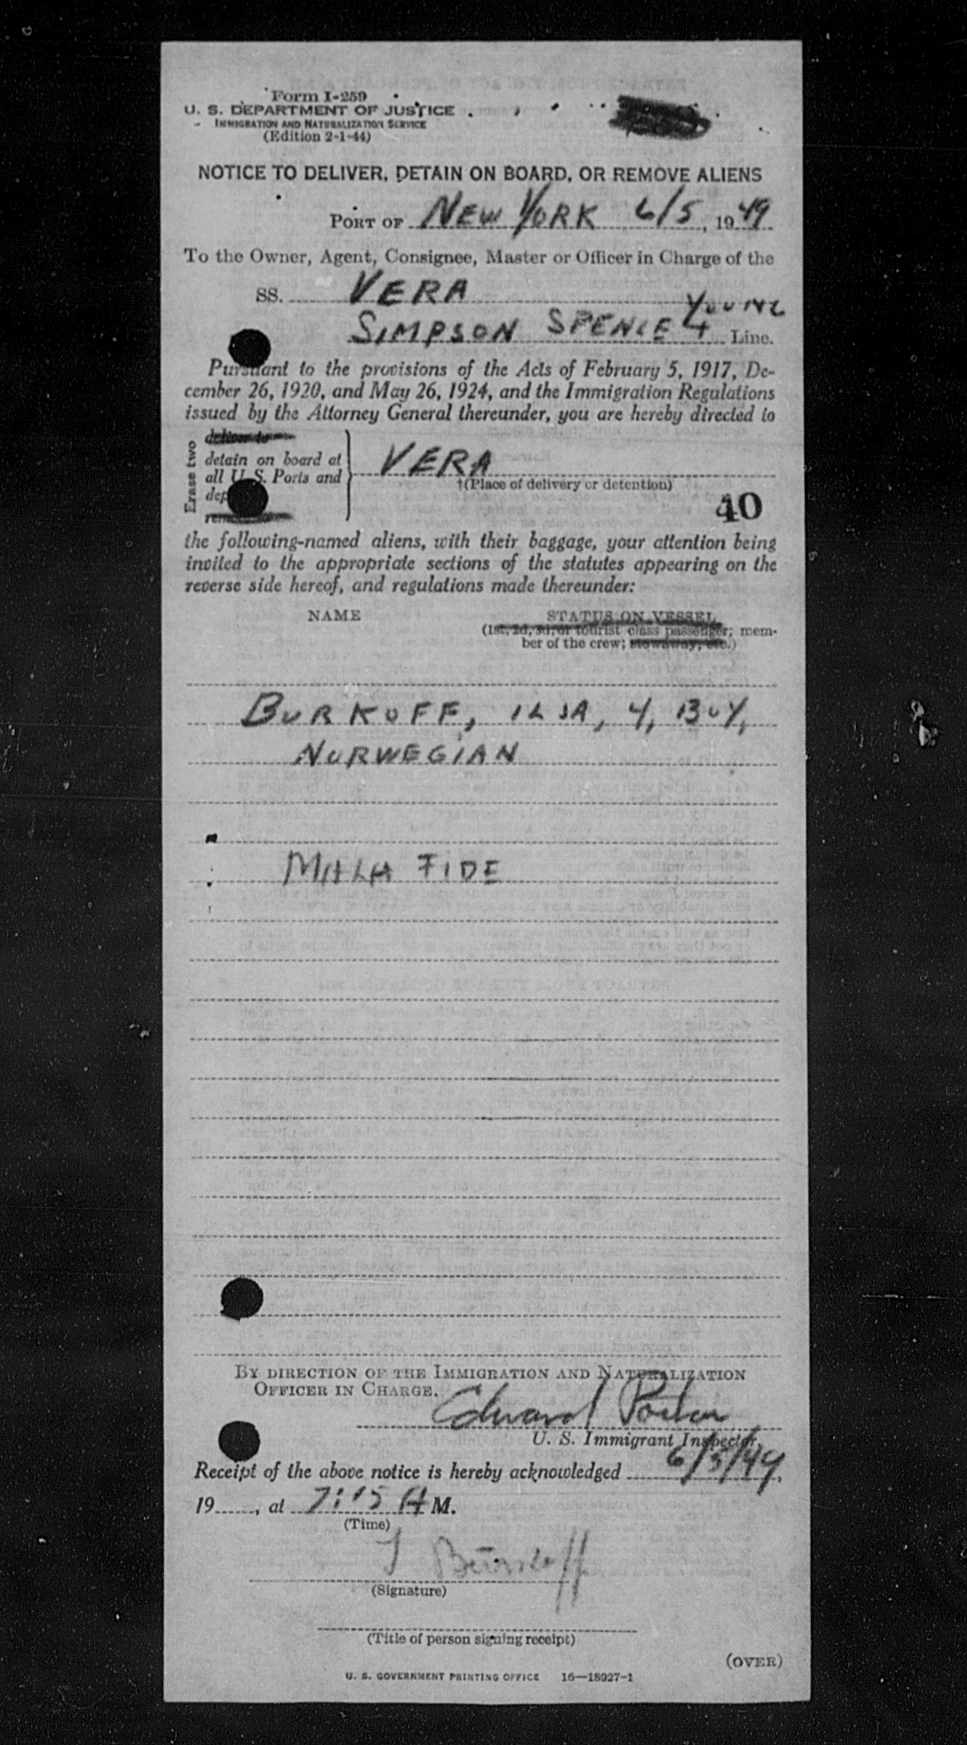 Form I-259
U. S. DEPARTMENT OF JUSTICE
IMMIGRATION AND NATURALIZATION SERVICE
(Edition 2-1-44)
NOTICE TO DELIVER, DETAIN ON BOARD, OR REMOVE ALIENS
PORT OF NEW YORK 6/5, 1949
To the Owner, Agent, Consignee, Master or Officer in Charge of the
SS. VERA
YOUNG
SIMPSON SPENCE & Line.
Pursuant to the provisions of the Acts of February 5, 1917, De-
cember 26, 1920, and May 26, 1924, and the Immigration Regulations
issued by the Attorney General thereunder, you are hereby directed to
Erase two
deliver to
detain on board at
all U. S. Ports and
VERA
†(Place of delivery or detention)
40
the following-named aliens, with their baggage, your attention being
invited to the appropriate sections of the statutes appearing on the
reverse side hereof, and regulations made thereunder:
NAME
STATUS ON VESSEL
(1st, 2d, 3d, or tourist class passenger; mem-
ber of the crew; stowaway, etc.)
BURKOFF, ILJA, 4, BOY,
NORWEGIAN
MALA FIDE
BY DIRECTION OF THE IMMIGRATION AND NATURALIZATION
OFFICER IN CHARGE.
Edward
U. S. Immigrant Inspector.
Receipt of the above notice is hereby acknowledged 6/5/49,
19, at 7:15 A M.
(Time)
I Burkoff
(Signature)
(Title of person signing receipt)
(OVER)
U. S. GOVERNMENT PRINTING OFFICE 16—18927-1